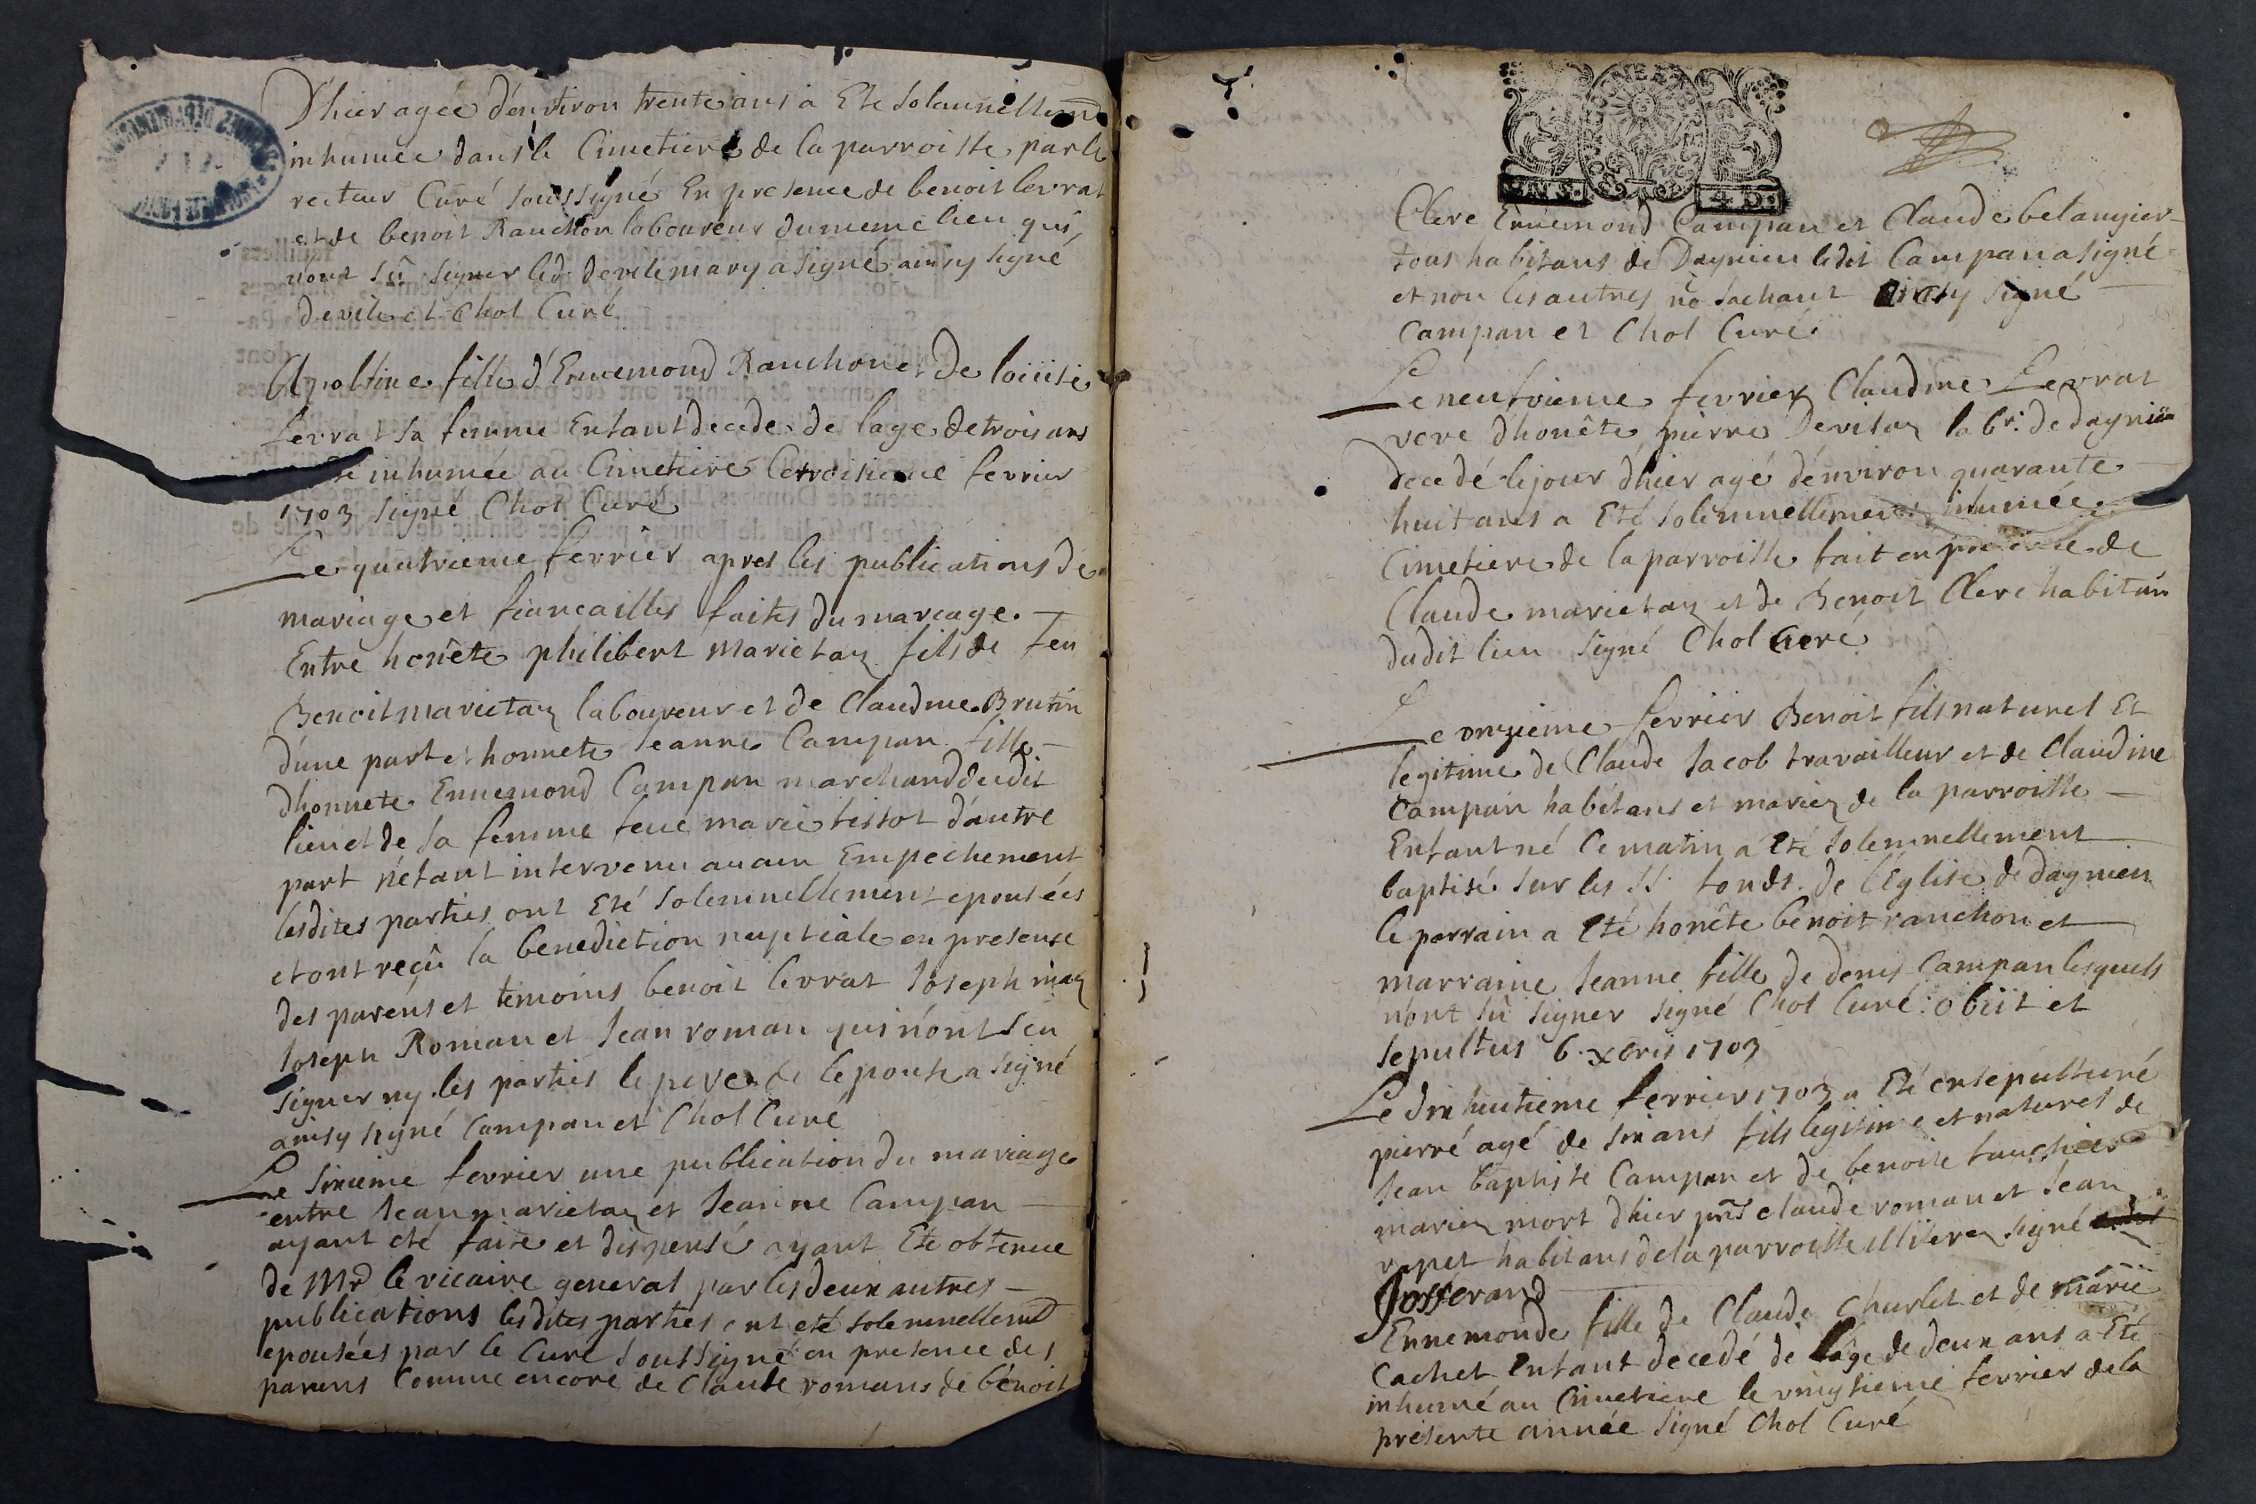 D'hier agée d'environ trente ans a Eté solannellem
inhumée dans le Cimetiere de la parroisse par le
recteur Curé soussigné En presence de benoit levrat
et de benoit Rauchon laboureur du meme lieu qui
nont sû signer led. devile mary a signé ainsy signé
devile et Chol Curé
Apoline fille d'Ennemond Rauchon et De loüise
levrat sa femme Enfant decede de lage de trois ans
inhumée au Cimetiere Ce troisieme fevrier
1703 signé Chol Curé
Le quatrieme fevrier apres les publications de
mariage et fiancailles faites du mariage
Entre honête philibert marietan fils de feu
Benoit marietan laboureur et de Claudine Brutin
d'une part et honnete Jeanne Campan fille
dhonnete Ennemond Campan marchand dudit
lieu et de sa femme feue marie tissot d'autre
part n'étant intervenu aucun Empechement
lesdites parties ont Eté solemnellement epousées
et ont reçû la benediction nuptiale en presense
des parens et temoins benoit levrat Joseph
Joseph Roman et Jean roman qui n'ont sçu
signer ny les parties le pere de lepouse a signé
ainsy signé Campan et Chol Curé
Le sixieme fevrier une publication du mariage
entre Jean marietan et Jeanne Campan
ayant eté faite et dispense ayant Eté obtenue
de Mr le vicaire general par les deux autres
publications lesdites parties ont eté solemnellemt
epousées par le Curé soussigné en presence des
parens Comme encore de Claude romans de bénoit
GENERALITE
2 S. 4 D.
Clerc Ennemond Campan et Claude belangier
tous habitans de Dagnieu ledit Campan a signé
et non les autres no sachant ainsy signé
Campan et Chol Curé
Le neufvieme fevrier Claudine Levrat
veve d'honête pierre Devilaz labr. de dagnieu
decedé le jour d'hier agé d'environ quarante
huit ans a Eté solemnellement inhumée
Cimetiere de la parroisse fait en presence de
Claude marietan et de Benoit Clerc habitan
dudit lieu signé Chol Curé
Le onzieme fevrier Benoit fils naturel Et
legitime de Claude Jacob travailleur et de Claudine
Campan habitans et mariez de la parroisse
Enfant né Ce matin a Eté solemnellement
baptisé sur les SS. fonds de l'Eglise de dagnieu
le parrain a Eté honête benoit ranchon et
marraine Jeanne fille de denis Campan lesquels
n'ont sû signer signé Chol Curé: obiit et
sepultus 6 xbris 1703
Le dix huitieme fevrier 1703 a Eté ensepulturé
pierre agé de six ans fils legitime et naturel de
Jean baptiste Campan et de benoite fauchier
mariez mort d'hier pnts claude roman et Jean
habitans de la parroisse illiterez signé
Josserand
Ennemonde fille de Claude Charlet et de marie
Cachet Enfant decedé de l'age de deux ans a Eté
inhumé au Cimetiere le vingtieme fevrier de la
présente année signé Chol Curé